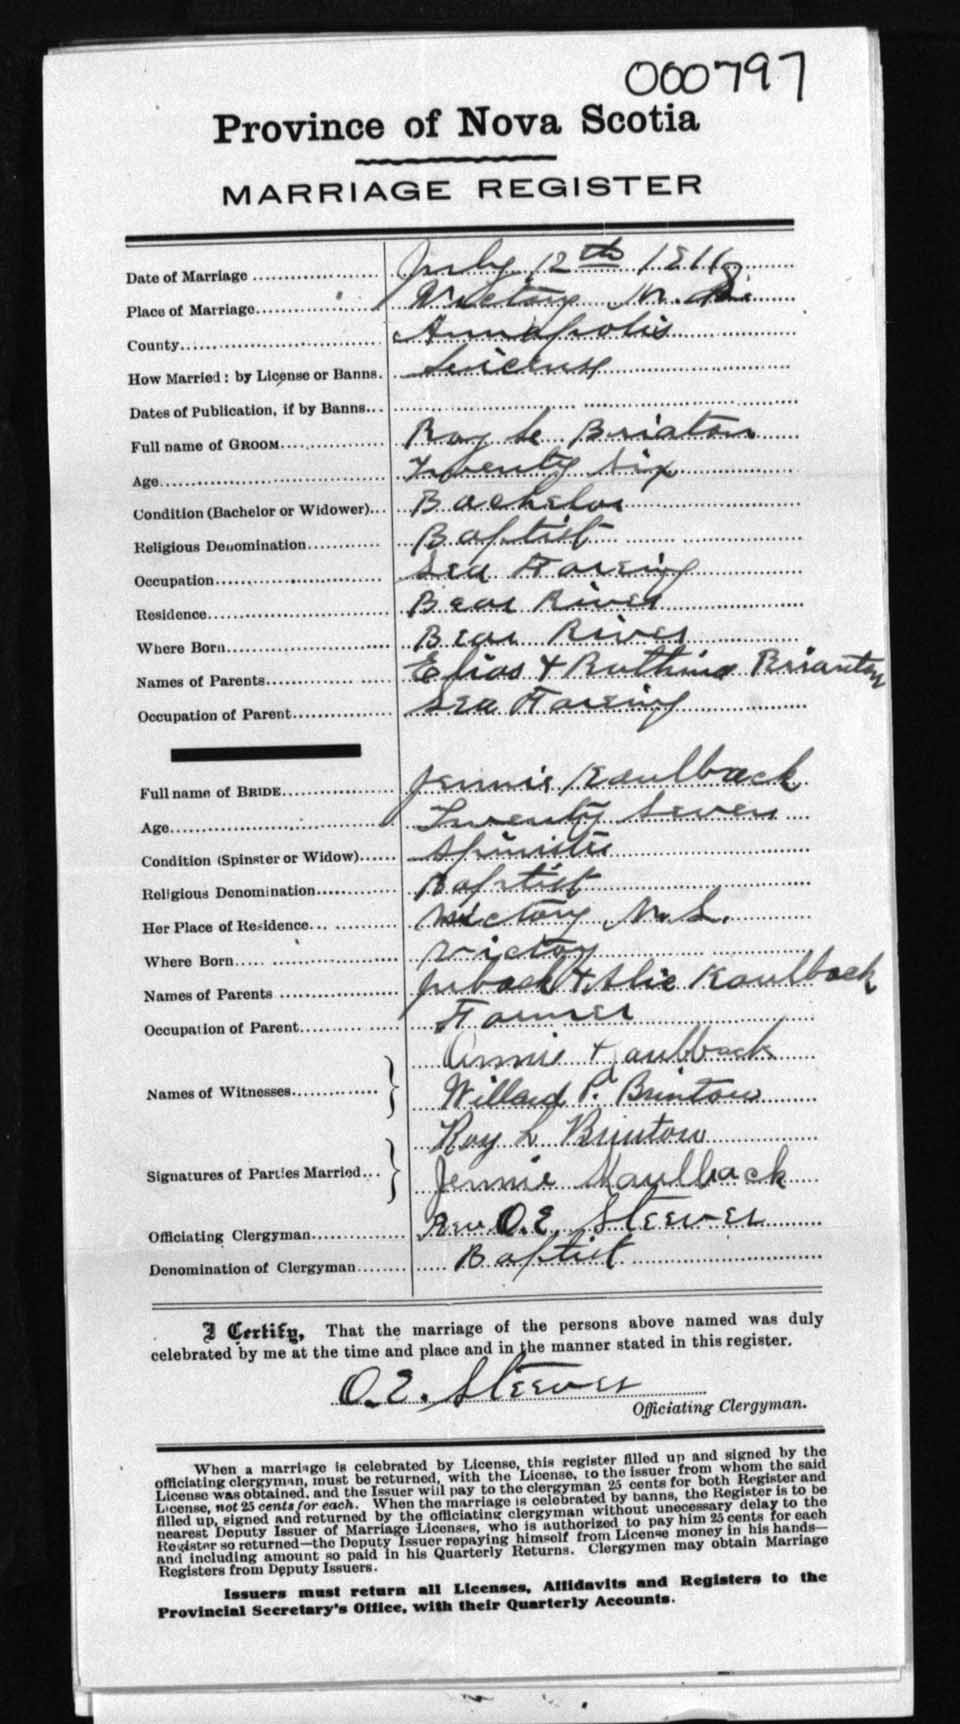 000797
Province of Nova Scotia
MARRIAGE REGISTER
Date of Marriage July 12th
Place of Marriage Victory N. S.
County Annapolis
How Married: by License or Banns. License
Dates of Publication, if by Banns
Full name of GROOM Roy L Brinton
Age Twenty Six
Condition (Bachelor or Widower) Bachelor
Religious Denomination Baptist
Occupation Sea Fareing
Residence Bear River
Where Born Bear River
Names of Parents Elias + Brianton
Occupation of Parent Sea Fareing
Full name of BRIDE Jennie Kaulback
Age Twenty Seven
Condition (Spinster or Widow) Spinster
Religious Denomination Baptist
Her Place of Residence Victory N. S.
Where Born Victory
Names of Parents + Kaulback
Occupation of Parent Farmer
Names of Witnesses Annie Kaulback
Willard P. Brinton
Signatures of Parties Married Roy L Brinton
Jennie Kaulback
Officiating Clergyman Rev O. E. Steeves
Denomination of Clergyman Baptist
I Certify, That the marriage of the persons above named was duly
celebrated by me at the time and place and in the manner stated in this register.
O. E. Steeves
Officiating Clergyman.
When a marriage is celebrated by License, this register filled up and signed by the
officiating clergyman, must be returned, with the License, to the issuer from whom the said
License was obtained, and the Issuer will pay to the clergyman 25 cents for both Register and
License, not 25 cents for each. When the marriage is celebrated by banns, the Register is to be
filled up, signed and returned by the officiating clergyman without unnecessary delay to the
nearest Deputy Issuer of Marriage Licenses, who is authorized to pay him 25 cents for each
Register so returned—the Deputy Issuer repaying himself from License money in his hands—
and including amount so paid in his Quarterly Returns. Clergymen may obtain Marriage
Registers from Deputy Issuers.
Issuers must return all Licenses, Affidavits and Registers to the
Provincial Secretary's Office, with their Quarterly Accounts.